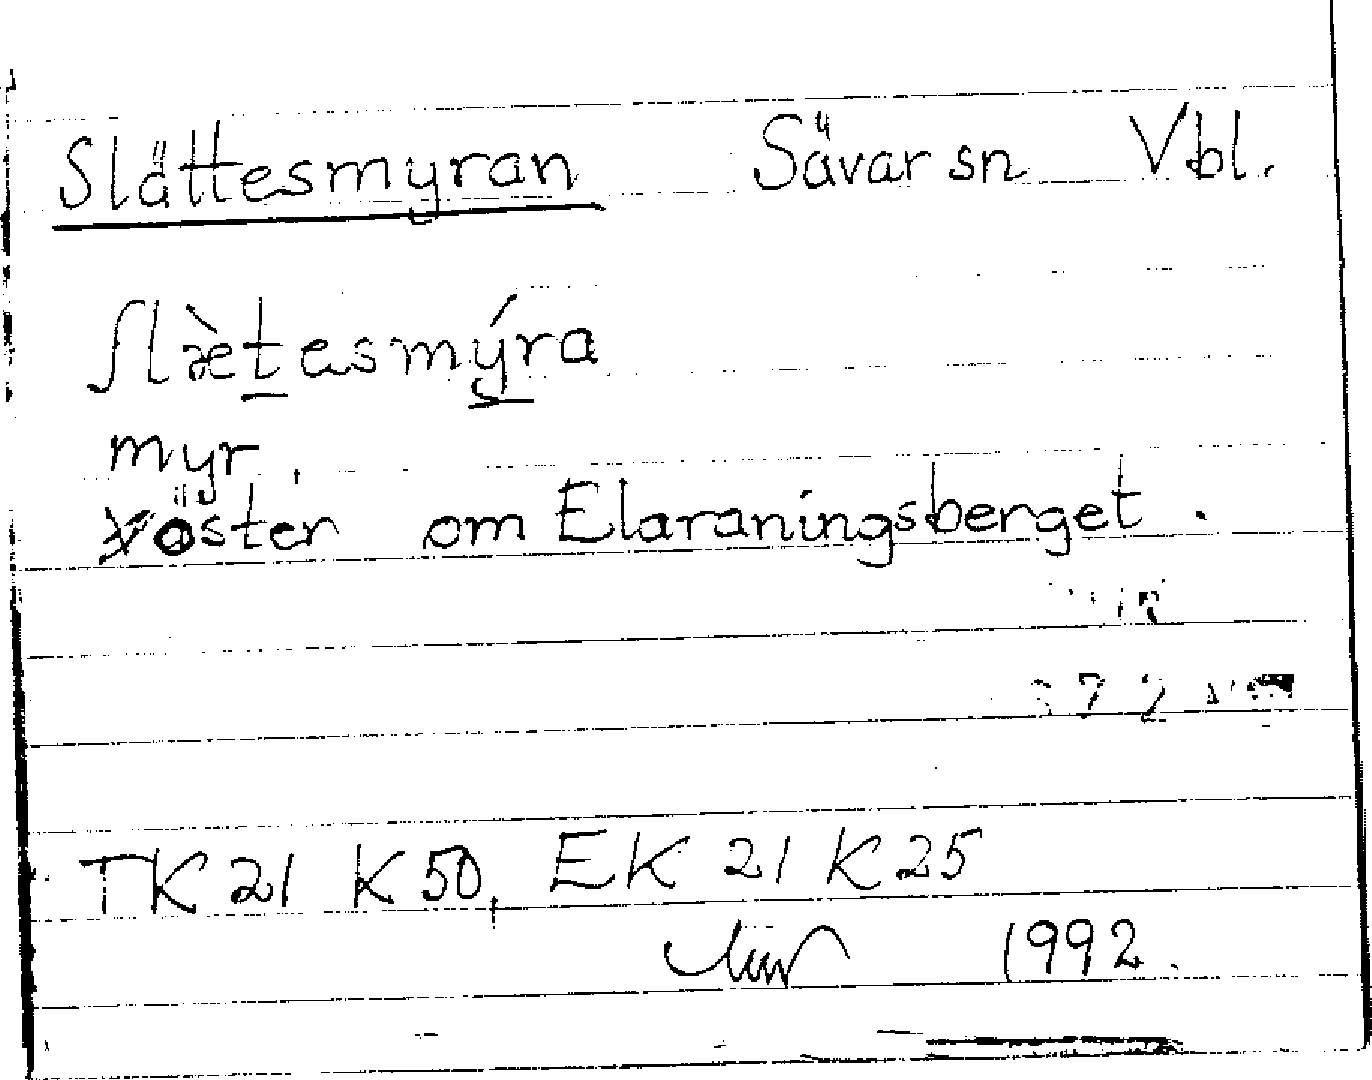 Slättesmyran Sävar sn Vbl.
ſlæ̀tesmýra
myr.
öster om Elaraningsberget.
TK 21 K 50, EK 21 K 25
1992.